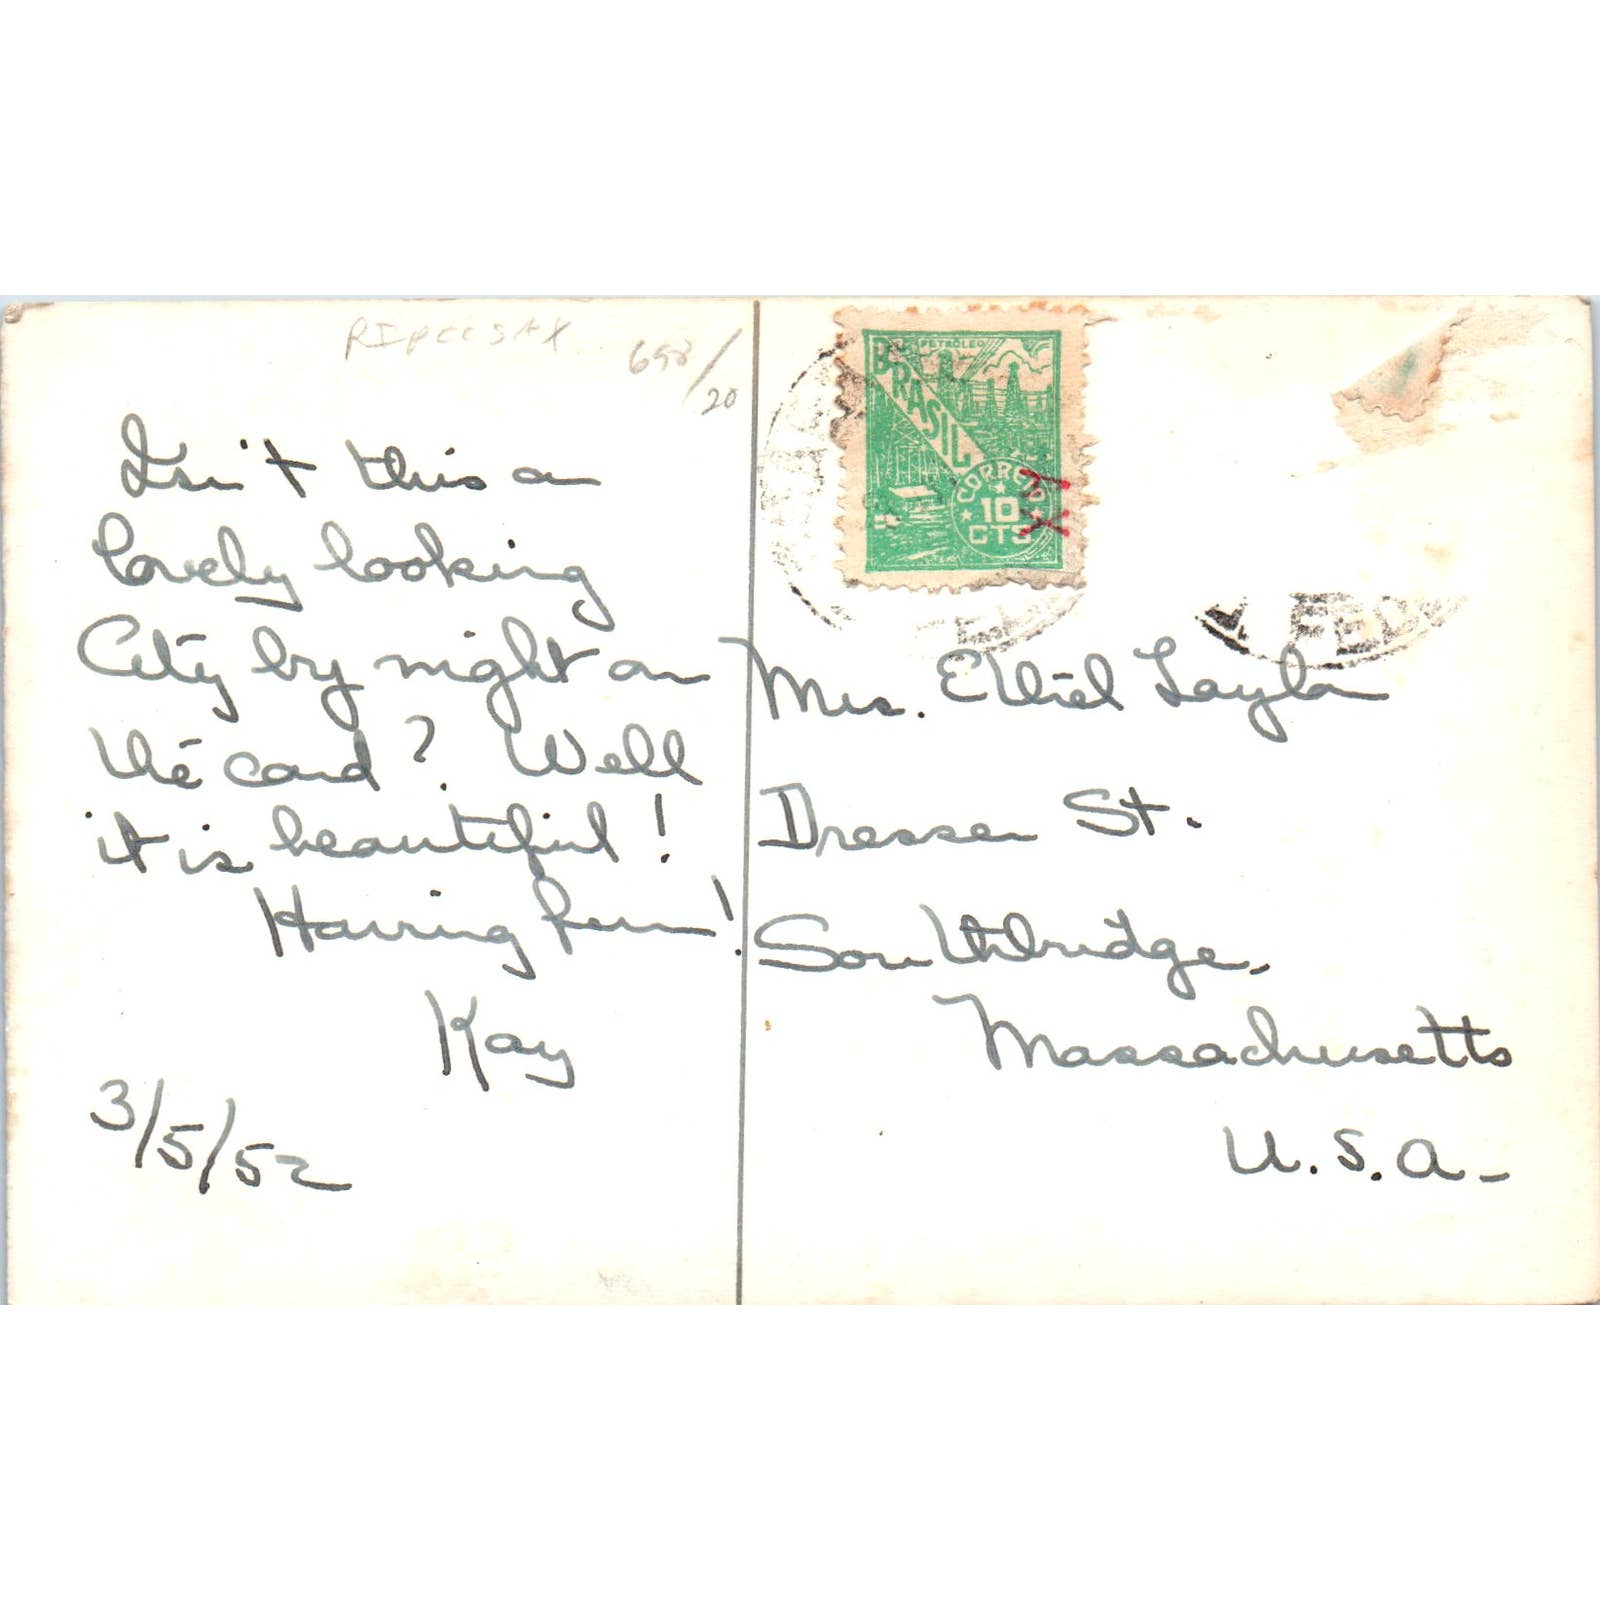 698/20
Isn't this a
lovely looking
City by night on
the card? Well
it is beautiful!
Having fun!
Kay
3/5/52
PETROLEO
BRASIL
CORREIO
10
CTS
FED
Mrs. Ethel Taylor
Dresser St.
Southbridge,
Massachusetts
U.S.A.